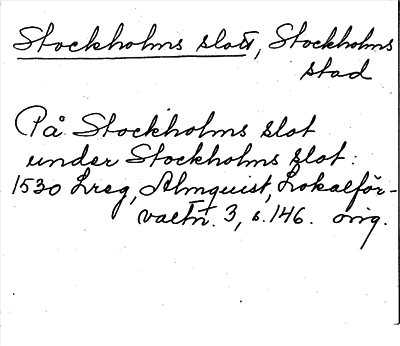 Stockholms slott, Stockholms
stad
På Stockholms slot
under Stockholms slot:
1530 Lreg, Almquist, Lokalför-
valtn. 3, s. 146. orig.